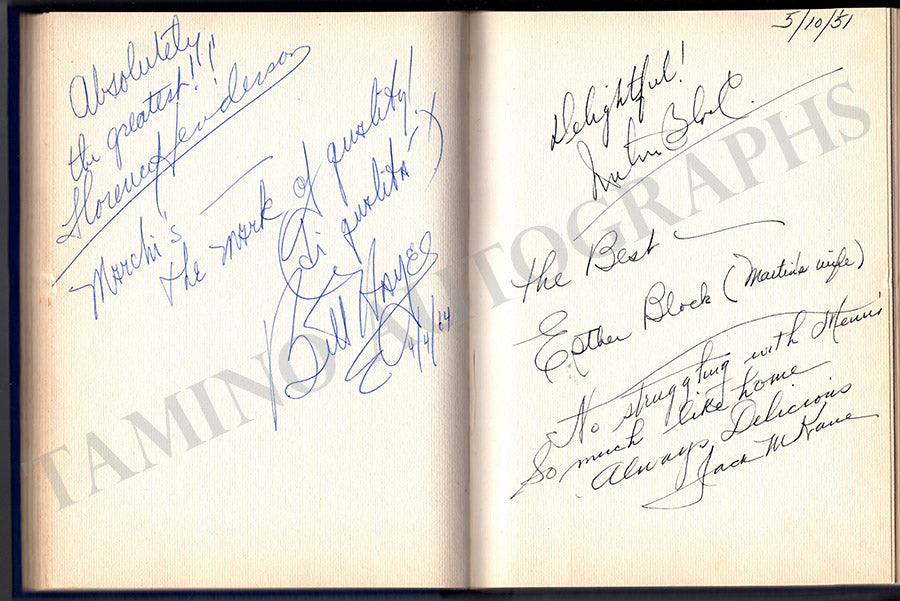 Absolutely
the greatest!!!
Florence Henderson
Marchi's —
the mark of quality!
(di qualità)
Bill Hayes
4/4/64
5/10/51
Delightful!
Martin Block
The Best —
Esther Block (Martin's wife)
No struggling with Menus
So much like home
Always Delicious
Jack M Kane
TAMINO AUTOGRAPHS